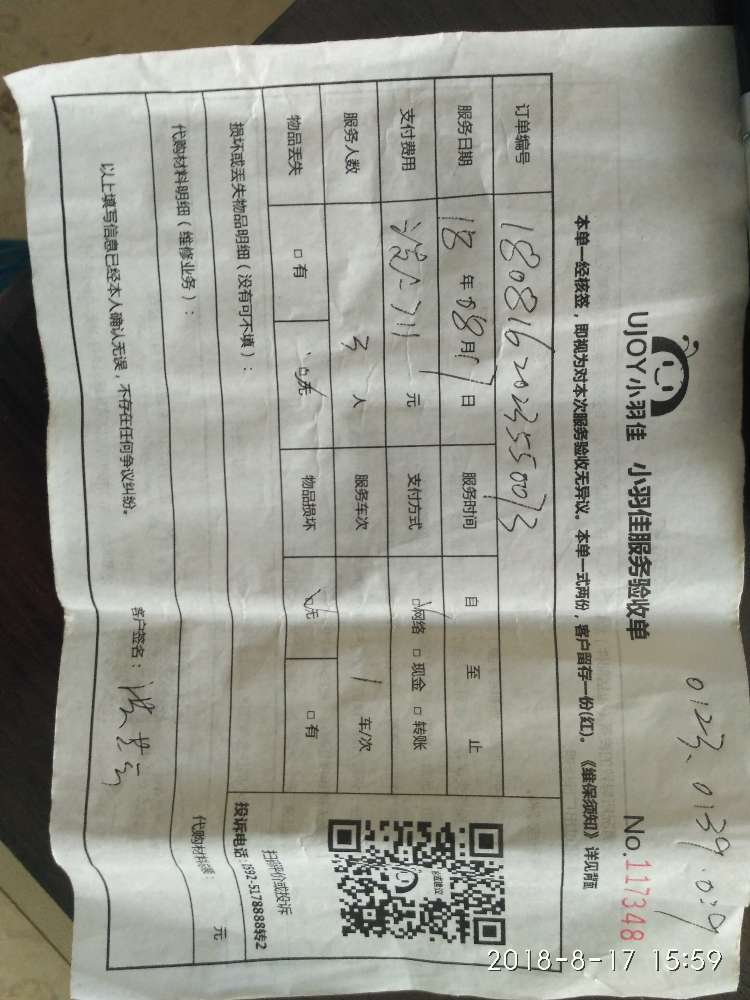 0123、0139.019
UJOY小羽佳 小羽佳服务验收单 No.117348
本单一经核签，即视为对本次服务验收无异议。本单一式两份，客户留存一份(红)。《维保须知》详见背面
订单编号 1808162023550073
服务日期 18年08月17日 服务时间 自 至 止
支付费用 元 支付方式 ☑网络 □现金 □转账
服务人数 3人 服务车次 1 车/次
物品丢失 □有 ☑无 物品损坏 ☑无 □有
损坏或丢失物品明细（没有可不填）：
扫码评价或投诉
投诉电话：0592-5178888转2
代购材料明细（维修业务）： 元
以上填写信息已经本人确认无误，不存在任何争议纠纷。 客户签名：
2018-8-17 15:59